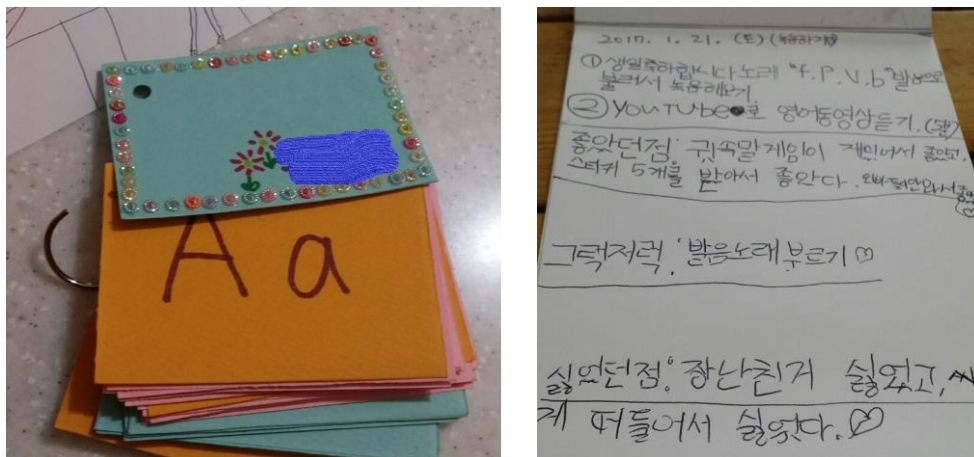 A a
2017. 1. 21. (토) (녹음하기)
① 생일축하합니다 노래 "f.P.V.b" 발음으로
불러서 녹음해오기.
② YouTube로 영어동영상듣기.
좋았던점: 귓속말게임이 재밌어서 좋았고,
스티커 5개를 받아서 좋았다.
그럭저럭: 발음노래부르기
싫었던점: 장난친거 싫었고,
게 떠들어서 싫었다.